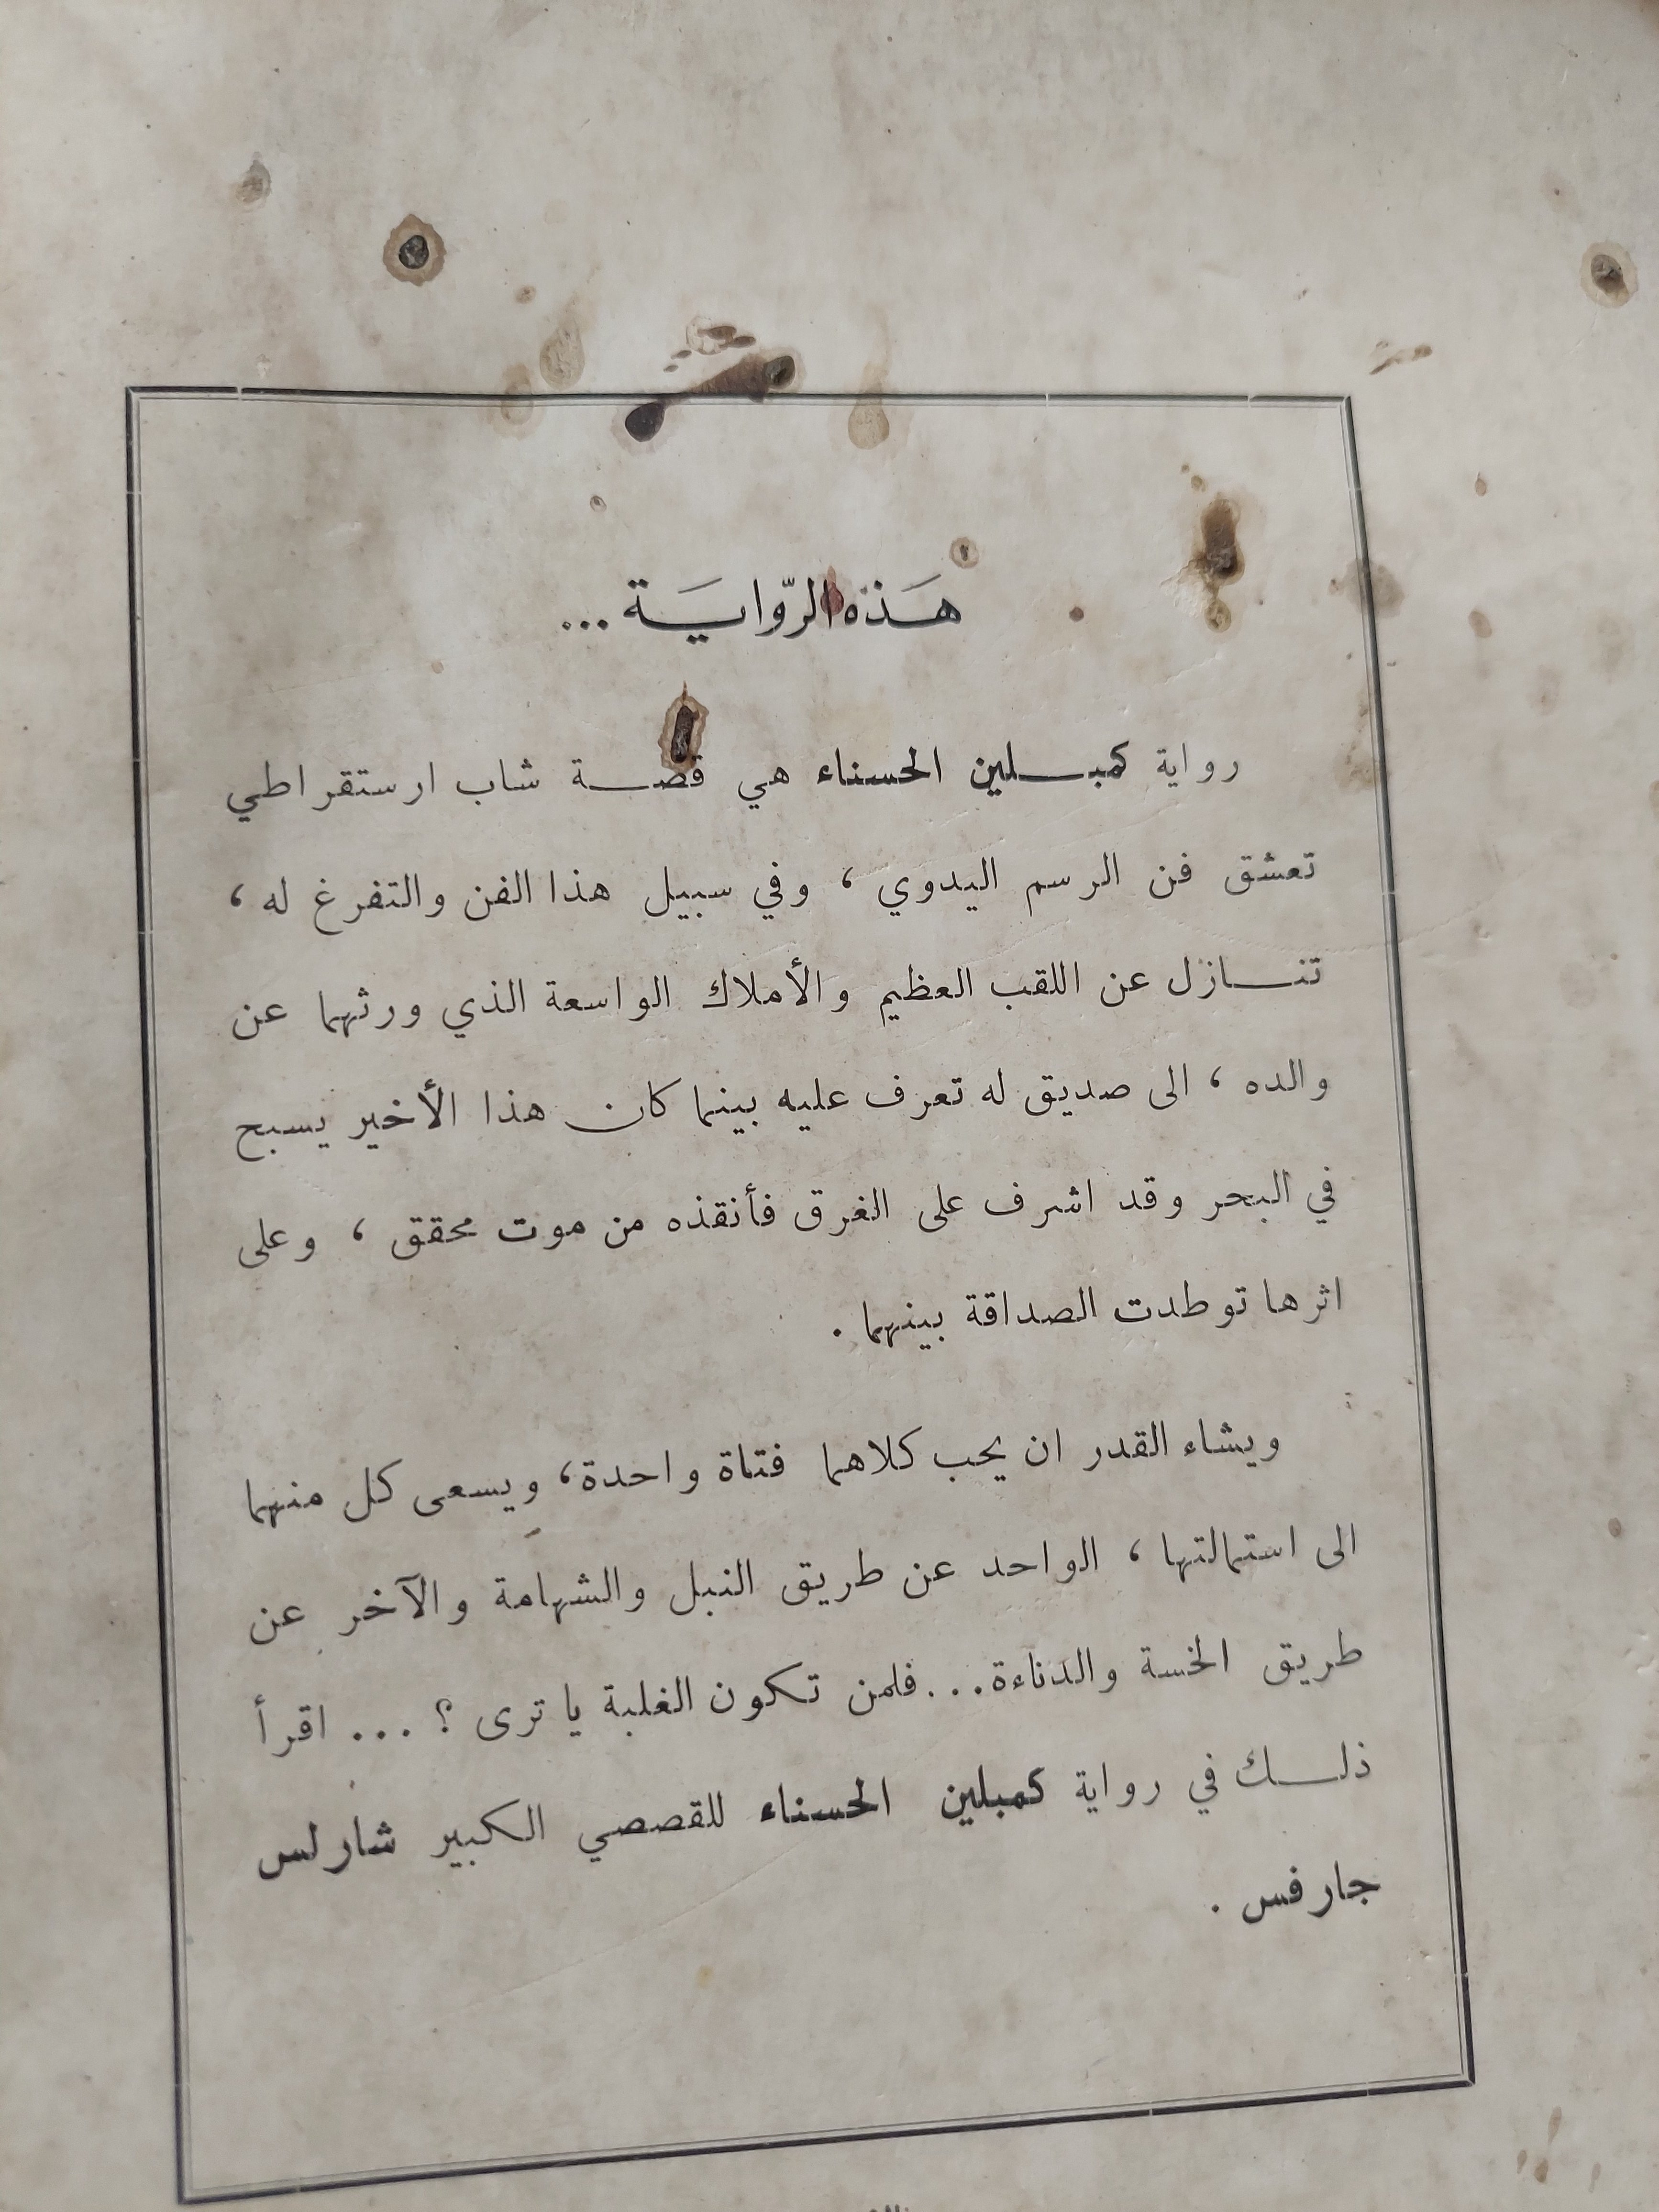 هَذه الرّوايَة ...
رواية كمبلين الحسناء هي قصة شاب ارستقراطي
تعشق فن الرسم اليدوي ، وفي سبيل هذا الفن والتفرغ له ،
تنازل عن اللقب العظيم والأملاك الواسعة الذي ورثهما عن
والده ، الى صديق له تعرف عليه بينما كان هذا الأخير يسبح
في البحر وقد اشرف على الغرق فأنقذه من موت محقق ، وعلى
اثرها توطدت الصداقة بينهما .
ويشاء القدر ان يحب كلاهما فتاة واحدة ، ويسعى كل منهما
الى استمالتها ، الواحد عن طريق النبل والشهامة والآخر عن
طريق الخسة والدناءة... فلمن تكون الغلبة يا ترى ؟ ... اقرأ
ذلك في رواية كمبلين الحسناء للقصصي الكبير شارلس
جارفس .